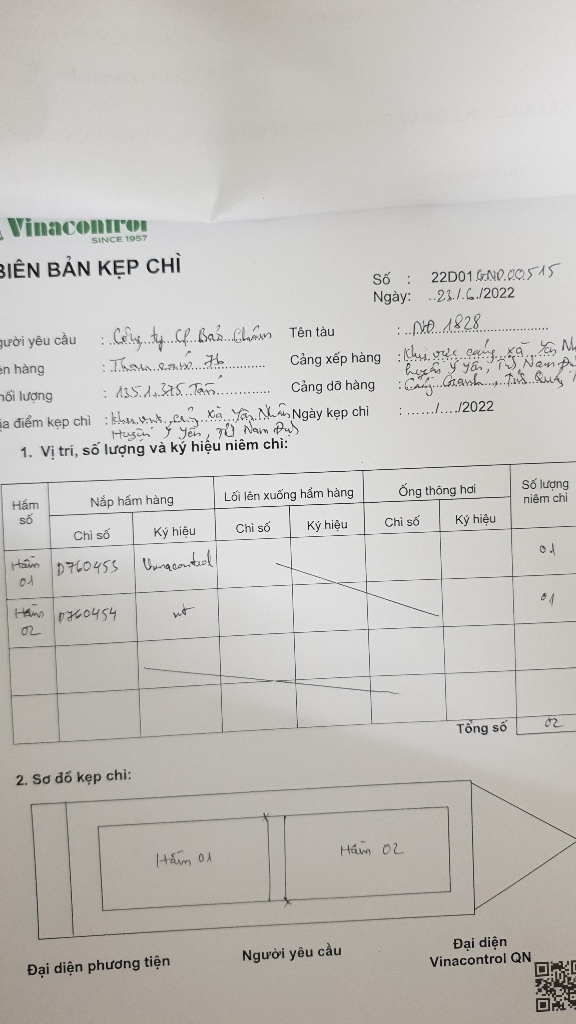 Vinacontrol
SINCE 1957
BIÊN BẢN KẸP CHÌ
Số : 22D01GND.00515
Ngày: 23/6/2022
gười yêu cầu : Công ty CP Bảo Châm Tên tàu : NĐ 1828
ên hàng : Than cám 7b Cảng xếp hàng : Khu vực cảng xã Yên Nh
huyện Ý Yên, Tỉ Nam Đị
hối lượng : 1351,375 Tấn Cảng dỡ hàng : Cảng
ịa điểm kẹp chì : Khu vực cảng xã Yên Nhân Ngày kẹp chì : ....../..../2022
Huyện Ý Yên, Tỉ Nam Định
1. Vị trí, số lượng và ký hiệu niêm chì:
Hầm số Nắp hầm hàng Lối lên xuống hầm hàng Ống thông hơi Số lượng niêm chì
Chì số Ký hiệu Chì số Ký hiệu Chì số Ký hiệu
Hầm 01 D760453 Vinacontrol 01
Hầm 02 D760454 nt 01
Tổng số 02
2. Sơ đồ kẹp chì:
Hầm 01 Hầm 02
Đại diện phương tiện Người yêu cầu Đại diện
Vinacontrol QN